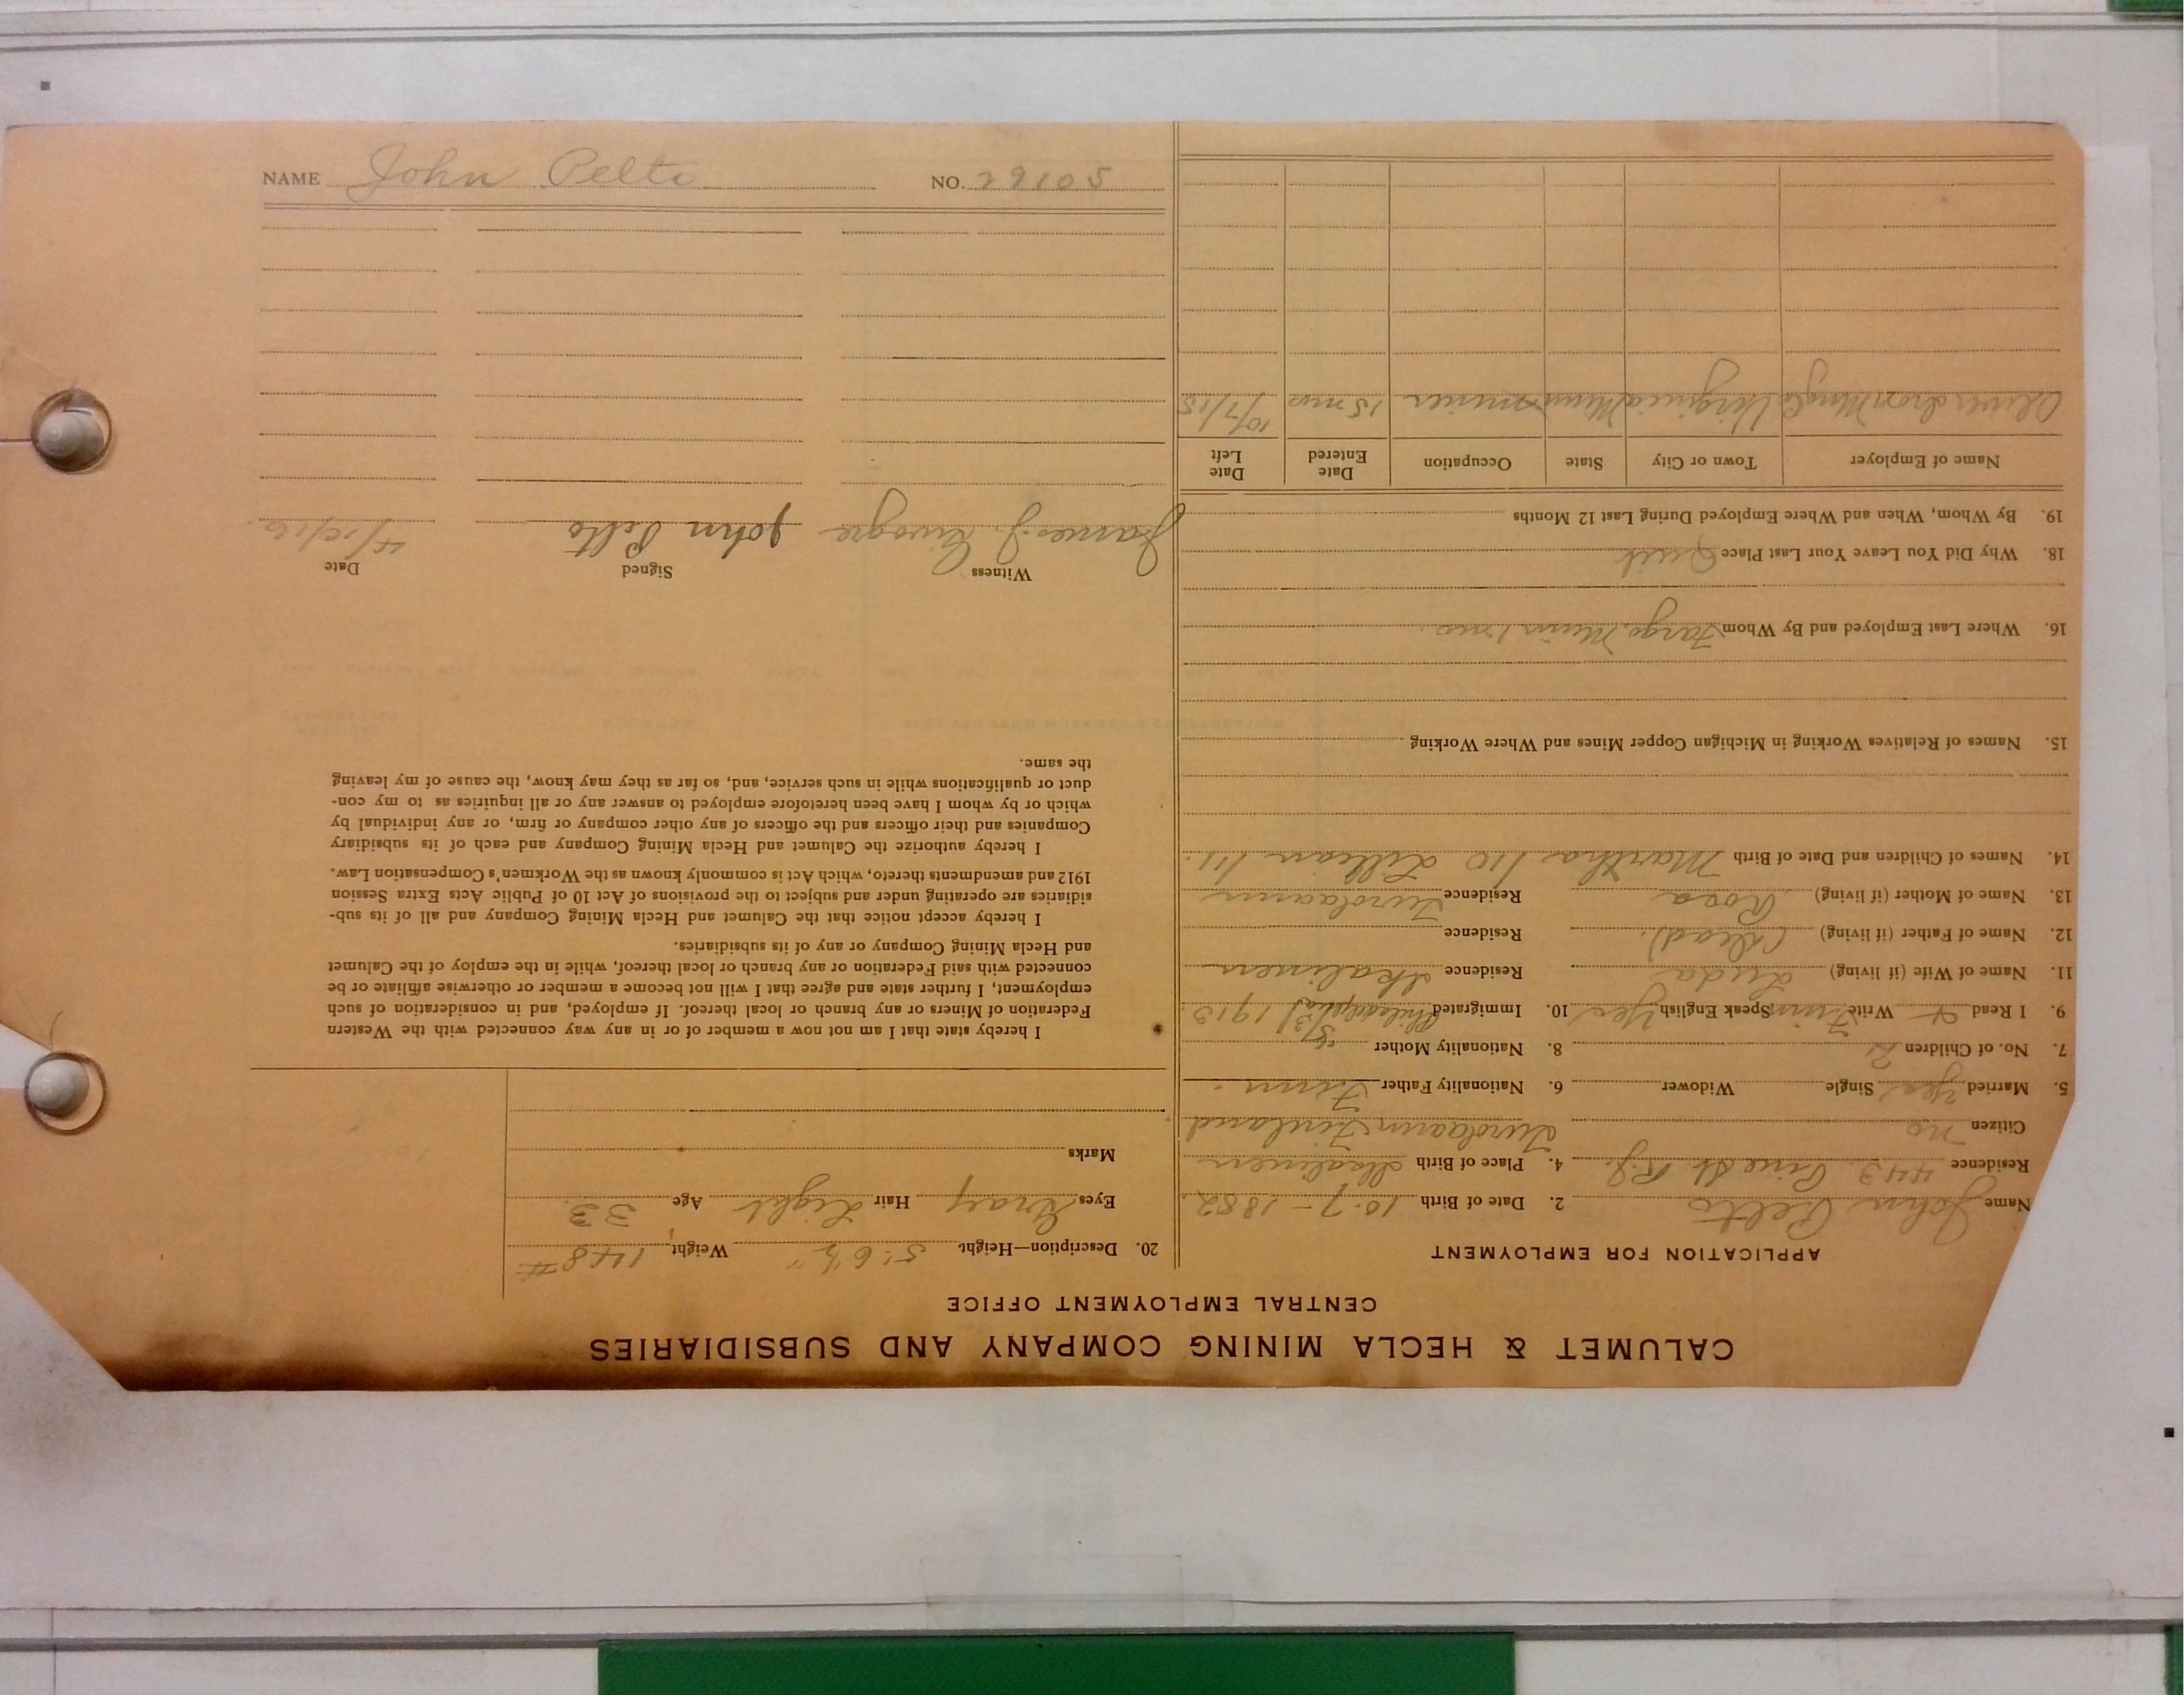 CALUMET & HECLA MINING COMPANY AND SUBSIDIARIES
CENTRAL EMPLOYMENT OFFICE
APPLICATION FOR EMPLOYMENT
Name John Pelto 2. Date of Birth 10-7-1882
Residence 443 Pine St. R.J. 4. Place of Birth
Citizen no Finland
5. Married Yes Single Widower 6. Nationality Father Finn
7. No. of Children 2 8. Nationality Mother "
9. I Read + Write Finn Speak English Yes 10. Immigrated Philadelphia 5/3/1913
11. Name of Wife (if living) Residence
12. Name of Father (if living) (Dead). Residence
13. Name of Mother (if living) Rosa Residence
14. Names of Children and Date of Birth Martha 1/10 Lillian 1/11.
15. Names of Relatives Working in Michigan Copper Mines and Where Working
16. Where Last Employed and By Whom Fargo, Minn 1 mo.
18. Why Did You Leave Your Last Place Quit
19. By Whom, When and Where Employed During Last 12 Months
Name of Employer Town or City State Occupation Date Entered Date Left
Oliver Iron Mng Co Virginia Minn miner 15 mos 10/7/15
20. Description—Height 5' 6½" Weight 148#
Eyes Gray Hair Light Age 33.
Marks
I hereby state that I am not now a member of or in any way connected with the Western
Federation of Miners or any branch or local thereof. If employed, and in consideration of such
employment, I further state and agree that I will not become a member or otherwise affiliate or be
connected with said Federation or any branch or local thereof, while in the employ of the Calumet
and Hecla Mining Company or any of its subsidiaries.
I hereby accept notice that the Calumet and Hecla Mining Company and all of its sub-
sidiaries are operating under and subject to the provisions of Act 10 of Public Acts Extra Session
1912 and amendments thereto, which Act is commonly known as the Workmen's Compensation Law.
I hereby authorize the Calumet and Hecla Mining Company and each of its subsidiary
Companies and their officers and the officers of any other company or firm, or any individual by
which or by whom I have been heretofore employed to answer any or all inquiries as to my con-
duct or qualifications while in such service, and, so far as they may know, the cause of my leaving
the same.
Witness Signed Date
James J. John Pelto 4/10/16
NAME John Pelto NO. 29105